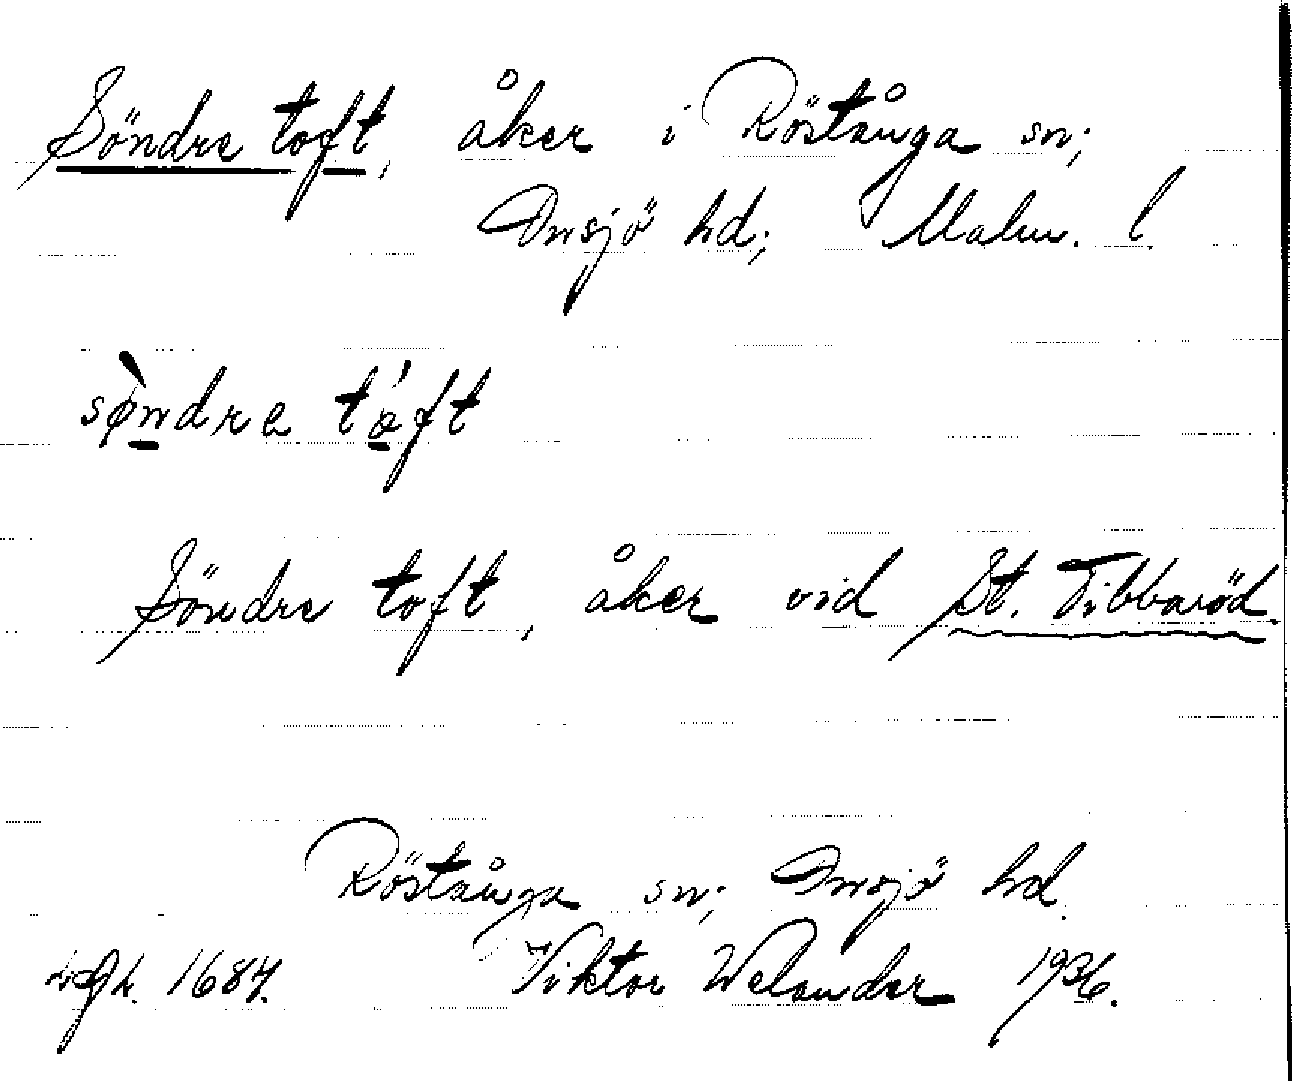 Söndre toft, åker i Röstånga sn;
Onsjö hd; Malm. l.
søndre toft
Söndre toft, åker vid St. Tibbaröd.
Röstånga sn; Onsjö hd.
1684. Viktor Welander 1936.